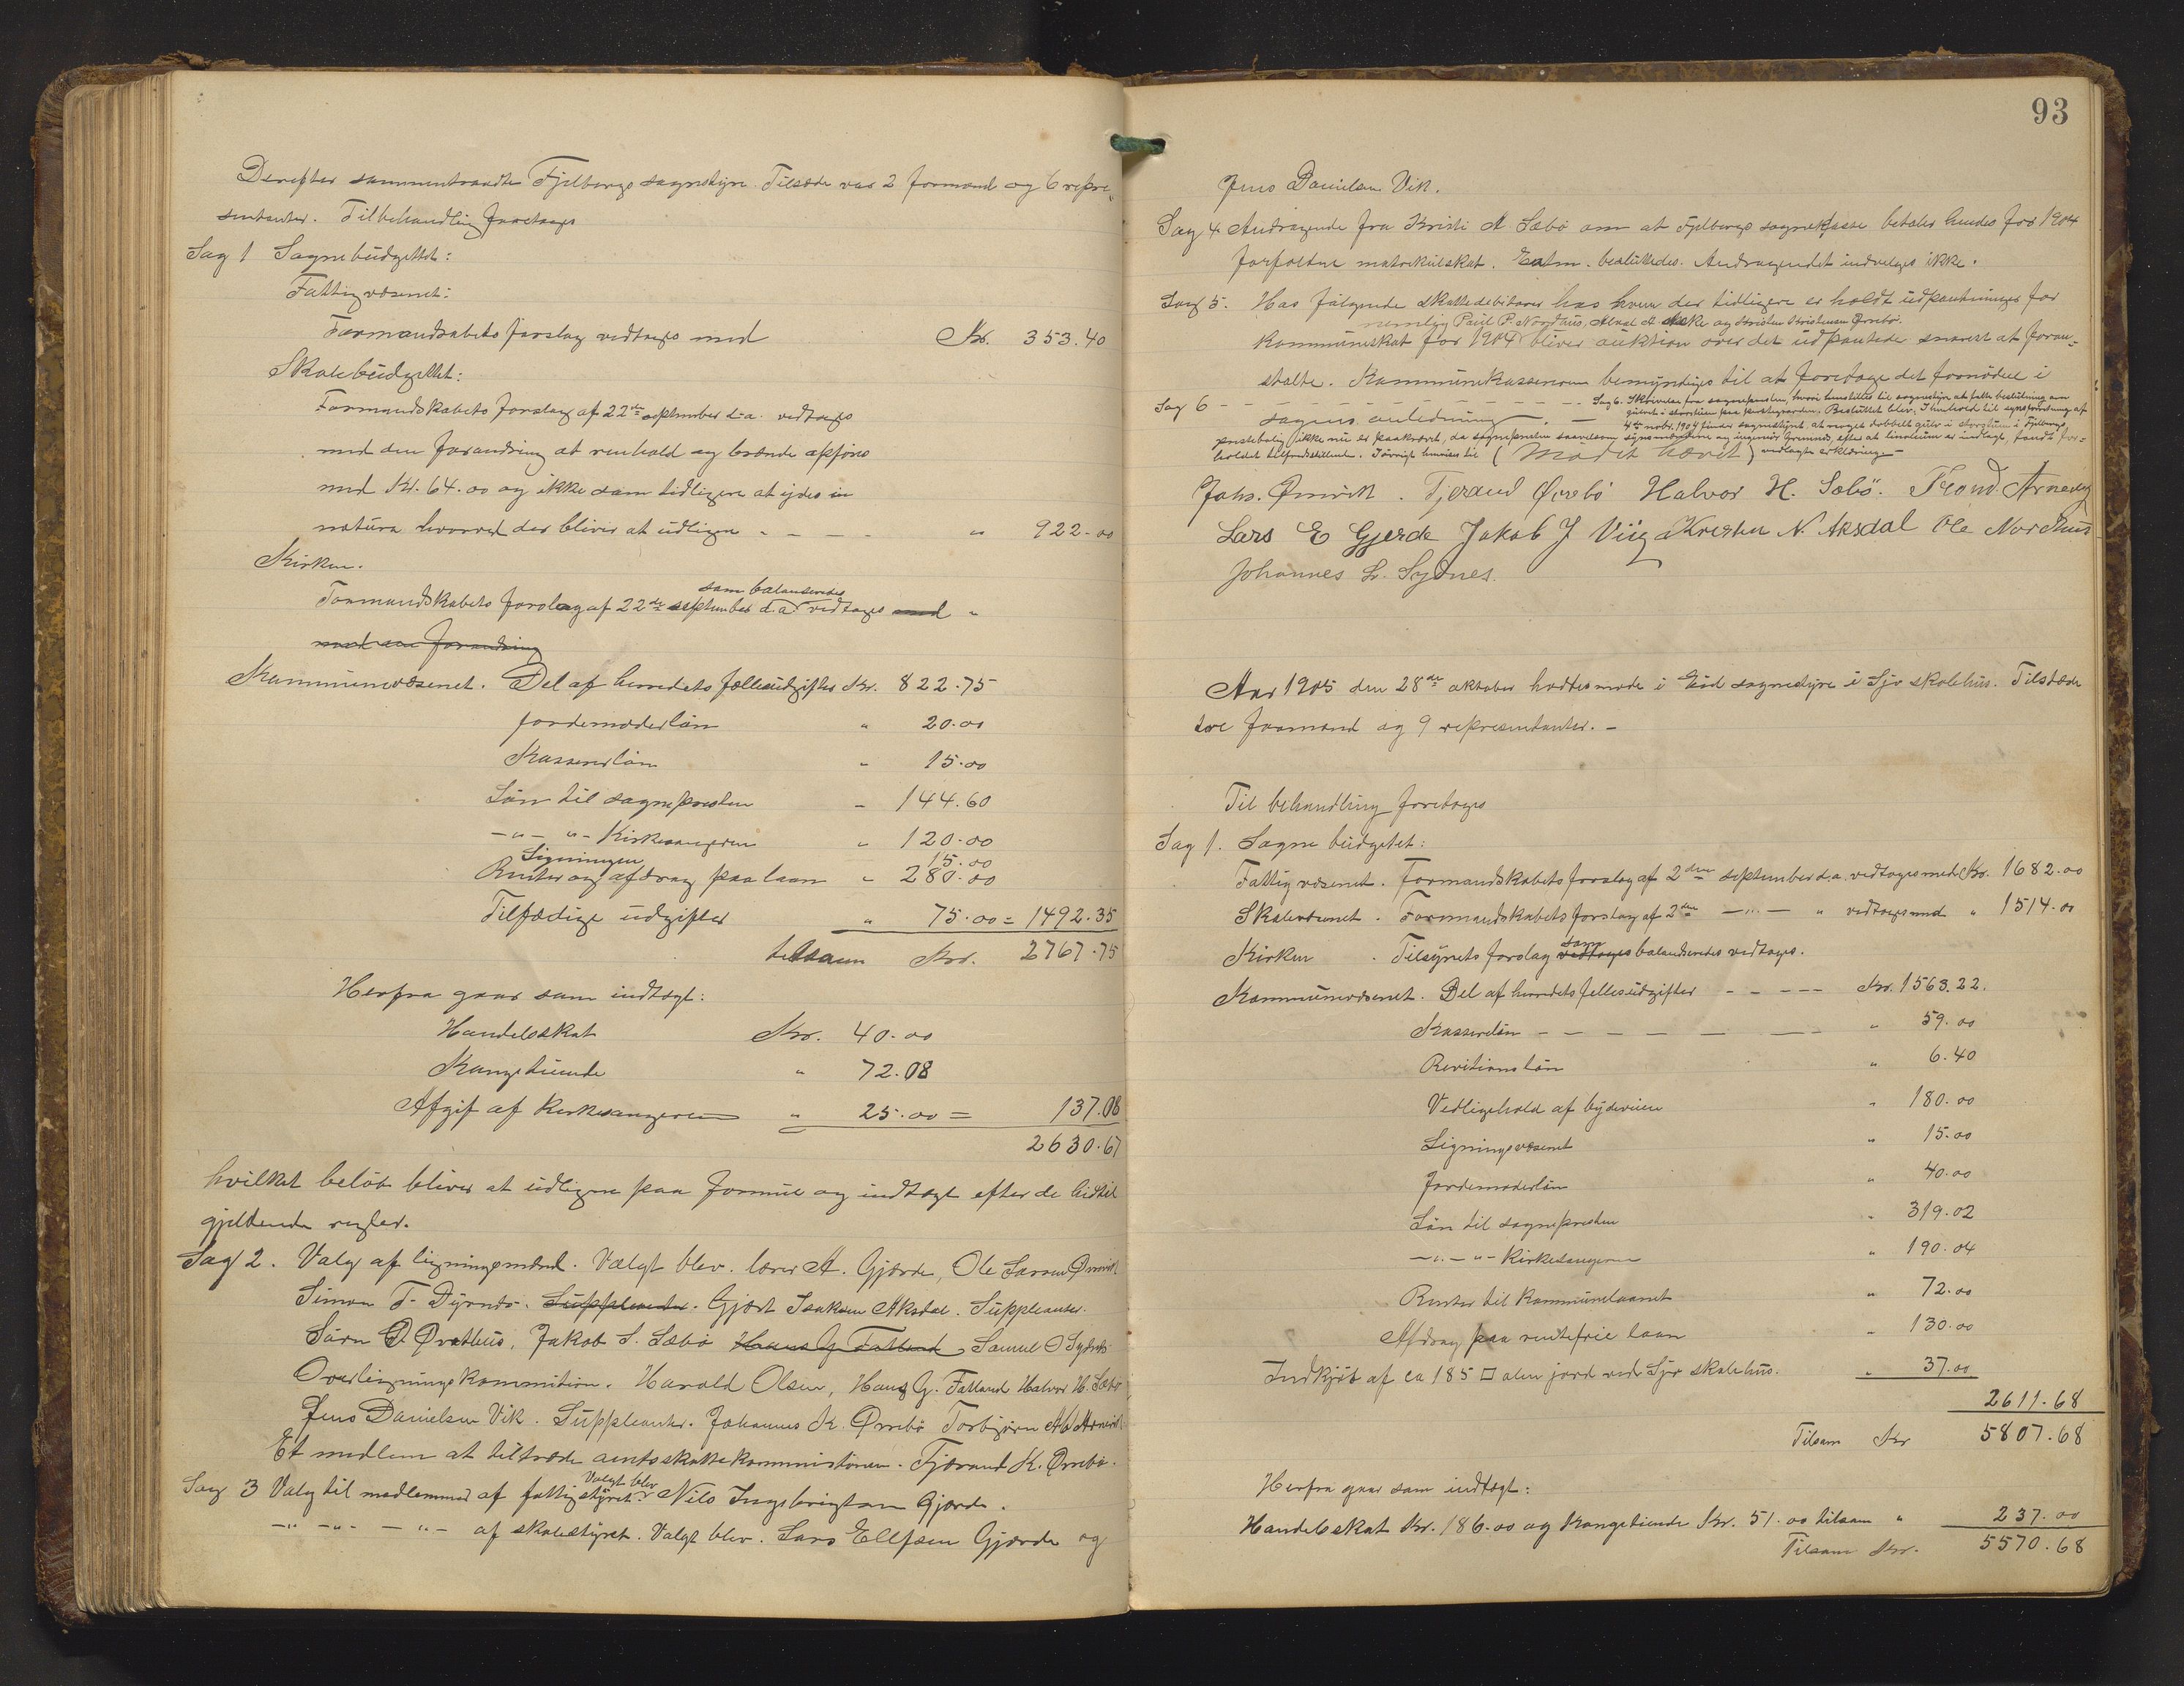 Derefter sammentraadte Fjelbergs sognestyre. Tilstede var 2 formænd og 6 repre-
sentanter. Til behandling foretoges
Sag 1 Sognebudgettet:
Fattigvæsenet:
Formandskabets forslag vedtoges med Kr. 353.40
Skolebudgettet:
Formandskabets forslag af 22de september d.a. vedtoges
med den forandring at renhold og brænde opføres
med Kr. 64.00 og ikke som tidligere at ydes in
natura hvorved der bliver at udligne - - - - " 922.00
Kirken.
som balanseredes
Formandskabets forslag af 22de september d.a. vedtoges med "
med en forandring
Kommunevæsenet. Del af herredets fællesudgifter Kr. 822.75
jordemoderløn " 20.00
Kassererløn " 15.00
Løn til sognepresten " 144.60
-"- "- Kirkesangeren " 120.00
Ligningen 15.00
Renter og afdrag paa laan " 280.00
Tilfældige udgifter " 75.00 = 1492.35
tilsam Kr. 2767.75
Herfra gaar som indtægt:
Handelsskat Kr. 40.00
Kongetiende " 72.08
Afgift af Kirkesangeren " 25.00 = 137.08
2630.67
hvilket beløb bliver at udligne paa formue og indtægt efter de hidtil
gjeldende regler.
Sag 2. Valg af ligningsmænd. Valgt blev. lærer A. Gjærde, Ole Larsen Ølnvik
Simon T. Dyrnæs. Suppleanter. Gjert Isaksen Aksdal. Suppleanter.
Søren Ørethus, Jakob S. Sæbø Hans G. Fatland, Samuel O Sydnes
Overligningskommission. Harald Olsen, Hans G. Fatland Halvor H. Sæbø
Jens Danielsen Vik. Suppleanter. Johannes K. Ørrebø Torbjørn
Et medlem at tiltræde amtsskattekommissionen. Tjærand K. Ørrebø.
Valgt blev
Sag 3 Valg til medlemmer af fattigstyret. Nils Ingebrigtsen Gjærde.
-"- -"- -"- af skolestyret. Valgt blev. Lars Ellefsen Gjærde og
93
Jens Danielsen Vik.
Sag 4 Andragende fra Kristi A. Sæbø om at Fjelbergs sognekasse betaler hendes for 1904
forfaldne matrikulskat. Enstm. besluttedes. Andragendet indvilges ikke.
Sag 5. Hos følgende skattedebitorer hos hvem der tidligere er holdt udpantninger for
nemlig Paul P. Nordhus, og Kristen Kristensen Ørrebø.
Kommuneskat for 1904 bliver auktion over det udpantede snarest at foran-
stalte. Kommunekassereren bemyndiges til at foretage det fornødne i
Sag 6 - - - - - Sag 6. Skrivelse fra sognepresten, hvori henstilles til sognestyret at fatte beslutning om
sagens anledning. - gulvet i storstuen paa prestegaarden. Besluttet blev: I henhold til synsforretning af
4de novbr. 1904 finder sognestyret, at noget dobbelt gulv i storstuen i Fjelbergs
prestebolig ikke nu er paakrævet, da sognepresten saavelsom synsmændene og ingeniør , efter at linoleum er indlagt, fandt for-
holdet tilfredsstillende. Iøvrigt henvises til (Mødet hævet) vedlagte erklæringer -
Johs. Ølnvik. Tjerand Ørrebø Halvor H. Sæbø. Trond Arnevik
Lars E Gjerde Jakob J Viig Kresten N. Aksdal Ole Nordhus
Johannes L. Sydnes.
Aar 1905 den 28de oktober holdtes møde i Eid sognestyre i Sjo skolehus. Tilstede
tre formænd og 9 representanter. -
Til behandling foretoges
Sag 1. Sognebudgetet:
Fattigvæsenet. Formandskabets forslag af 2den september d.a. vedtoges med Kr. 1682.00
Skolevæsenet. Formandskabets forslag af 2den -"- " vedtoges med " 1514.00
som
Kirken . Tilsynets forslag vedtoges balanseredes vedtoges.
Kommunevæsenet. Del af herredets fellesudgifter - - - - - Kr. 1563.22.
Kassererløn - - - - - - - " 59.00
Revisionsløn " 6.40
Vedligehold af bydeveiene " 180.00
Ligningsvæsenet " 15.00
Jordemoderløn " 40.00
Løn til sognepresten " 319.02
-"- -"- Kirkesangeren " 190.04
Renter til Kommunelaanet " 72.00
Afdrag paa rentefrie laan " 130.00
Indkjøb af ca 185 □ alen jord ved Sjo skolehus. " 37.00
2611.68
Tilsam Kr 5807.68
Herfra gaar som indtægt:
Handelsskat Kr. 186.00 og Kongetiende Kr. 51.00 tilsam " 237.00
Tilsam Kr. 5570.68